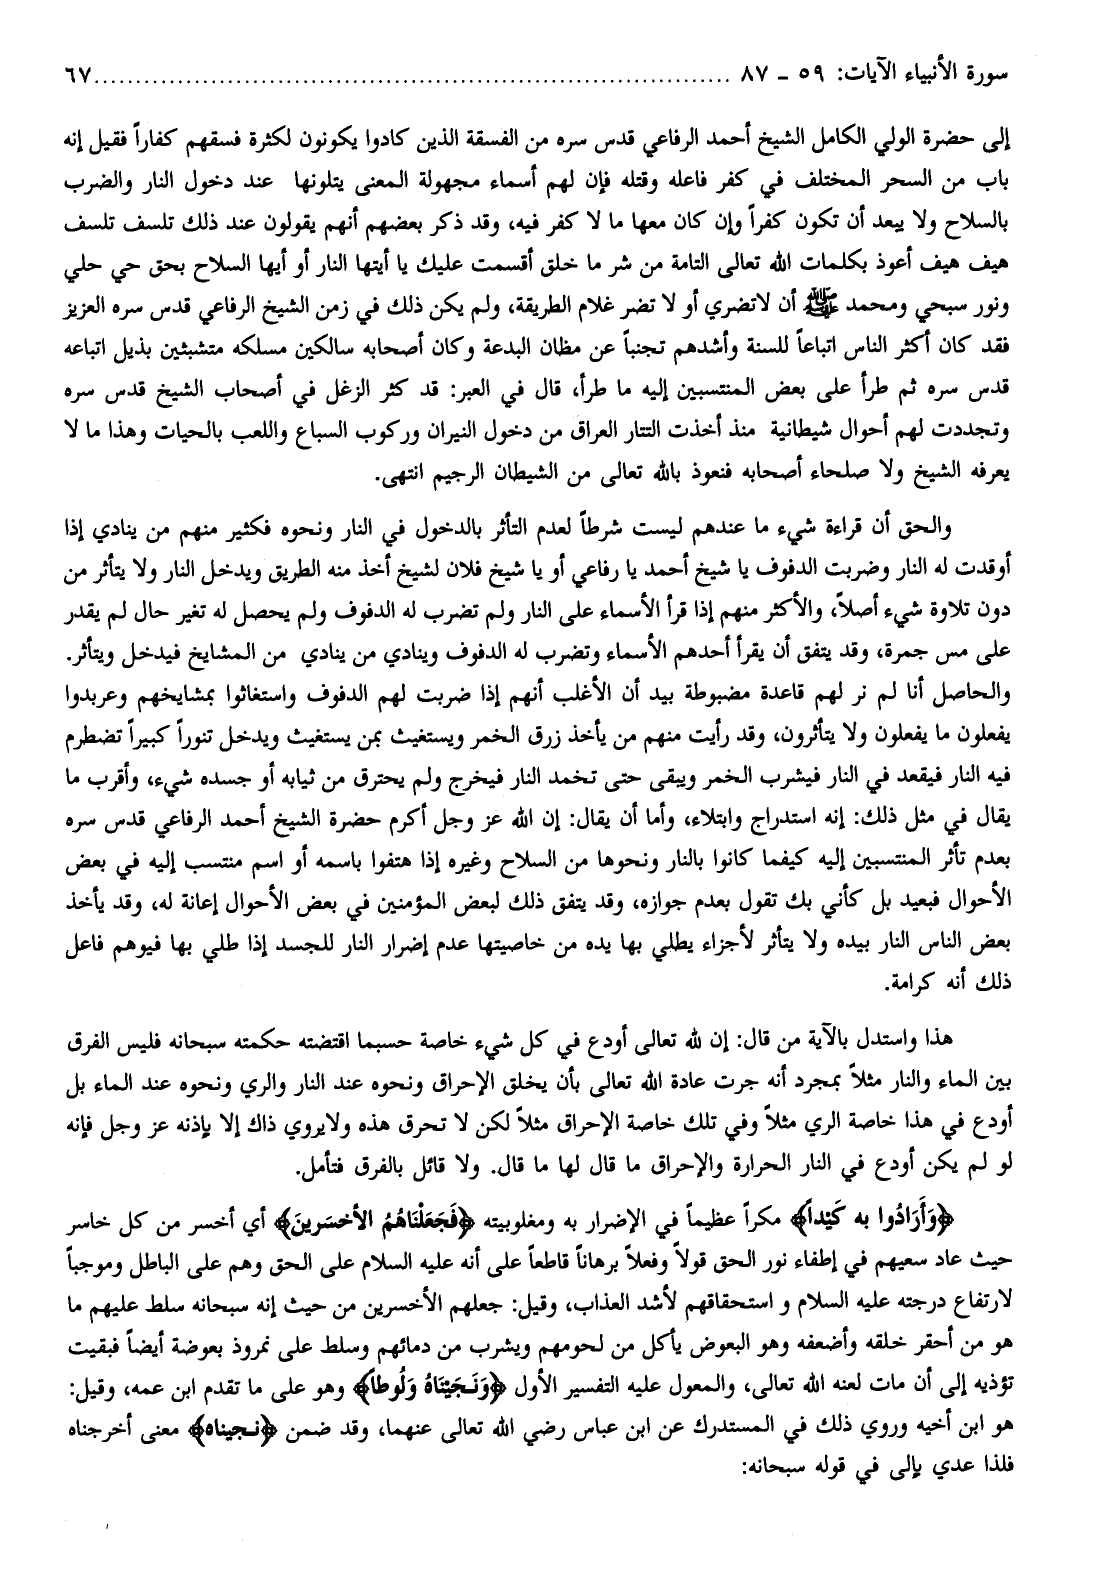 سورة الأنبياء الآيات: ٥٩ - ٨٧ ............................................................................ ٦٧
إلى حضرة الولي الكامل الشيخ أحمد الرفاعي قدس سره من الفسقة الذين كادوا يكونون لكثرة فسقهم كفاراً فقيل إنه
باب من السحر المختلف في كفر فاعله وقتله فإن لهم أسماء مجهولة المعنى يتلونها عند دخول النار والضرب
بالسلاح ولا يبعد أن تكون كفراً وإن كان معها ما لا كفر فيه، وقد ذكر بعضهم أنهم يقولون عند ذلك تلسف تلسف
هيف هيف أعوذ بكلمات الله تعالى التامة من شر ما خلق أقسمت عليك يا أيتها النار أو أيها السلاح بحق حي حلي
ونور سبحي ومحمد ﷺ أن لاتضري أو لا تضر غلام الطريقة، ولم يكن ذلك في زمن الشيخ الرفاعي قدس سره العزيز
فقد كان أكثر الناس اتباعاً للسنة وأشدهم تجنباً عن مظان البدعة وكان أصحابه سالكين مسلكه متشبثين بذيل اتباعه
قدس سره ثم طرأ على بعض المنتسبين إليه ما طرأ، قال في العبر: قد كثر الزغل في أصحاب الشيخ قدس سره
وتجددت لهم أحوال شيطانية منذ أخذت التتار العراق من دخول النيران وركوب السباع واللعب بالحيات وهذا ما لا
يعرفه الشيخ ولا صلحاء أصحابه فنعوذ بالله تعالى من الشيطان الرجيم انتهى.
والحق أن قراءة شيء ما عندهم ليست شرطاً لعدم التأثر بالدخول في النار ونحوه فكثير منهم من ينادي إذا
أوقدت له النار وضربت الدفوف يا شيخ أحمد يا رفاعي أو يا شيخ فلان لشيخ أخذ منه الطريق ويدخل النار ولا يتأثر من
دون تلاوة شيء أصلاً، والأكثر منهم إذا قرأ الأسماء على النار ولم تضرب له الدفوف ولم يحصل له تغير حال لم يقدر
على مس جمرة، وقد يتفق أن يقرأ أحدهم الأسماء وتضرب له الدفوف وينادي من ينادي من المشايخ فيدخل ويتأثر.
والحاصل أنا لم نر لهم قاعدة مضبوطة بيد أن الأغلب أنهم إذا ضربت لهم الدفوف واستغاثوا بمشايخهم وعربدوا
يفعلون ما يفعلون ولا يتأثرون، وقد رأيت منهم من يأخذ زرق الخمر ويستغيث بمن يستغيث ويدخل تنوراً كبيراً تضطرم
فيه النار فيقعد في النار فيشرب الخمر ويبقى حتى تخمد النار فيخرج ولم يحترق من ثيابه أو جسده شيء، وأقرب ما
يقال في مثل ذلك: إنه استدراج وابتلاء، وأما أن يقال: إن الله عز وجل أكرم حضرة الشيخ أحمد الرفاعي قدس سره
بعدم تأثر المنتسبين إليه كيفما كانوا بالنار ونحوها من السلاح وغيره إذا هتفوا باسمه أو اسم منتسب إليه في بعض
الأحوال فبعيد بل كأني بك تقول بعدم جوازه، وقد يتفق ذلك لبعض المؤمنين في بعض الأحوال إعانة له، وقد يأخذ
بعض الناس النار بيده ولا يتأثر لأجزاء يطلي بها يده من خاصيتها عدم إضرار النار للجسد إذا طلي بها فيوهم فاعل
ذلك أنه كرامة.
هذا واستدل بالآية من قال: إن لله تعالى أودع في كل شيء خاصة حسبما اقتضته حكمته سبحانه فليس الفرق
بين الماء والنار مثلاً بمجرد أنه جرت عادة الله تعالى بأن يخلق الإحراق ونحوه عند النار والري ونحوه عند الماء بل
أودع في هذا خاصة الري مثلاً وفي تلك خاصة الإحراق مثلاً لكن لا تحرق هذه ولايروي ذاك إلا بإذنه عز وجل فإنه
لو لم يكن أودع في النار الحرارة والإحراق ما قال لها ما قال. ولا قائل بالفرق فتأمل.
﴿وَأَرَادُوا به كَيْداً﴾ مكراً عظيماً في الإضرار به ومغلوبيته ﴿فَجَعَلْنَاهُمُ الأخسَرينَ﴾ أي أخسر من كل خاسر
حيث عاد سعيهم في إطفاء نور الحق قولاً وفعلاً برهاناً قاطعاً على أنه عليه السلام على الحق وهم على الباطل وموجباً
لارتفاع درجته عليه السلام و استحقاقهم لأشد العذاب، وقيل: جعلهم الأخسرين من حيث إنه سبحانه سلط عليهم ما
هو من أحقر خلقه وأضعفه وهو البعوض يأكل من لحومهم ويشرب من دمائهم وسلط على نمروذ بعوضة أيضاً فبقيت
تؤذيه إلى أن مات لعنه الله تعالى، والمعول عليه التفسير الأول ﴿وَنَجَّيْنَاهُ وَلُوطاً﴾ وهو على ما تقدم ابن عمه، وقيل:
هو ابن أخيه وروي ذلك في المستدرك عن ابن عباس رضي الله تعالى عنهما، وقد ضمن ﴿نجيناه﴾ معنى أخرجناه
فلذا عدي بإلى في قوله سبحانه: